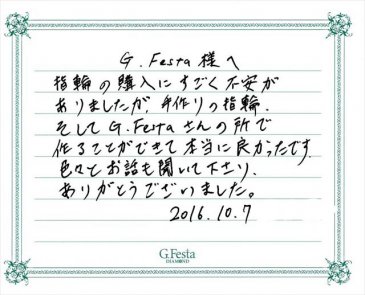 G.Festa 様へ
指輪の購入にすごく不安が
ありましたが、手作りの指輪、
そしてG.Festaさんの所で
作ることができて本当に良かったです。
色々とお話も聞いて下さり、
ありがとうございました。
2016.10.7
G.Festa
DIAMOND